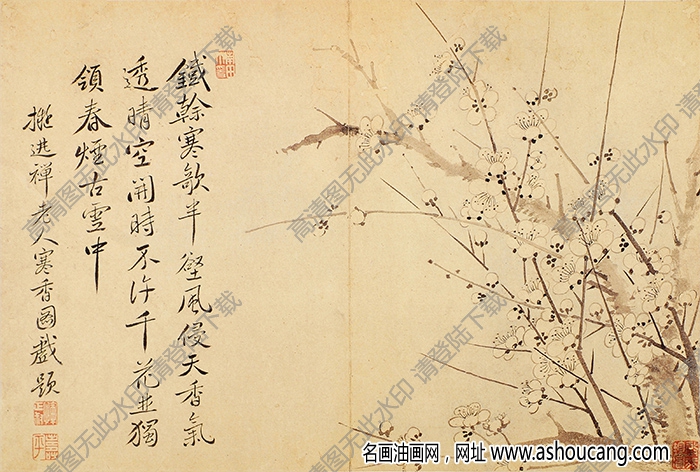 鐵榦寒欹半壑風侵天香氣
透晴空開時不許千花並獨
領春煙古雪中
擬逃禪老人寒香圖戲題
高清图无此水印 请登陆下载
高清图无此水印 请登陆下载
高清图无此水印 请登陆下载
高清图无此水印 请登陆下载
名画油画网，网址 www.ashoucang.com